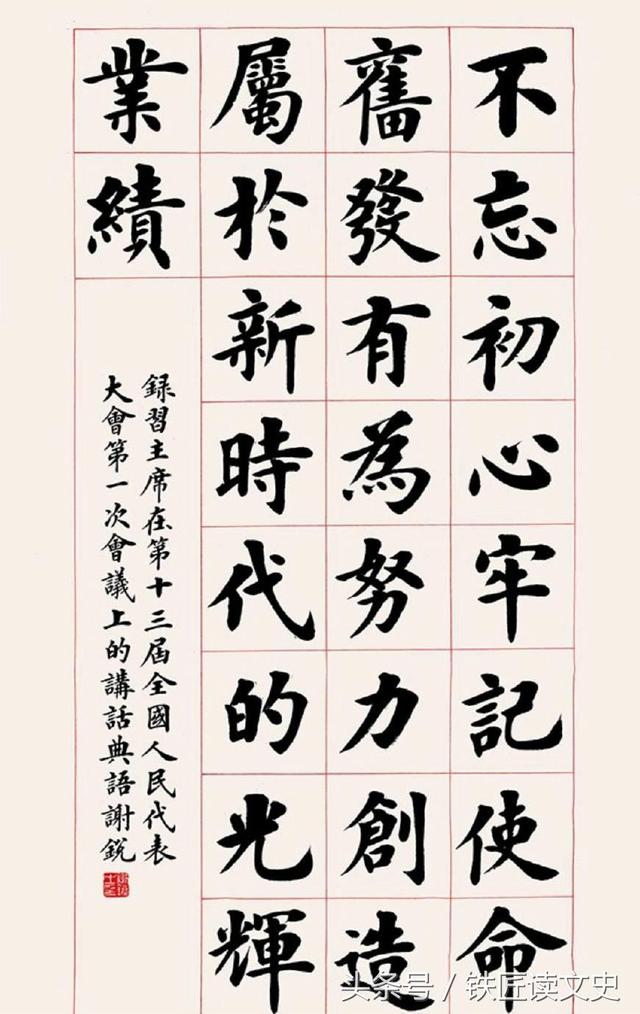 不忘初心牢記使命
奮發有為努力創造
屬於新時代的光輝
業績
録習主席在第十三屆全國人民代表
大會第一次會議上的講話典語謝鋭
头条号 / 铁匠读文史